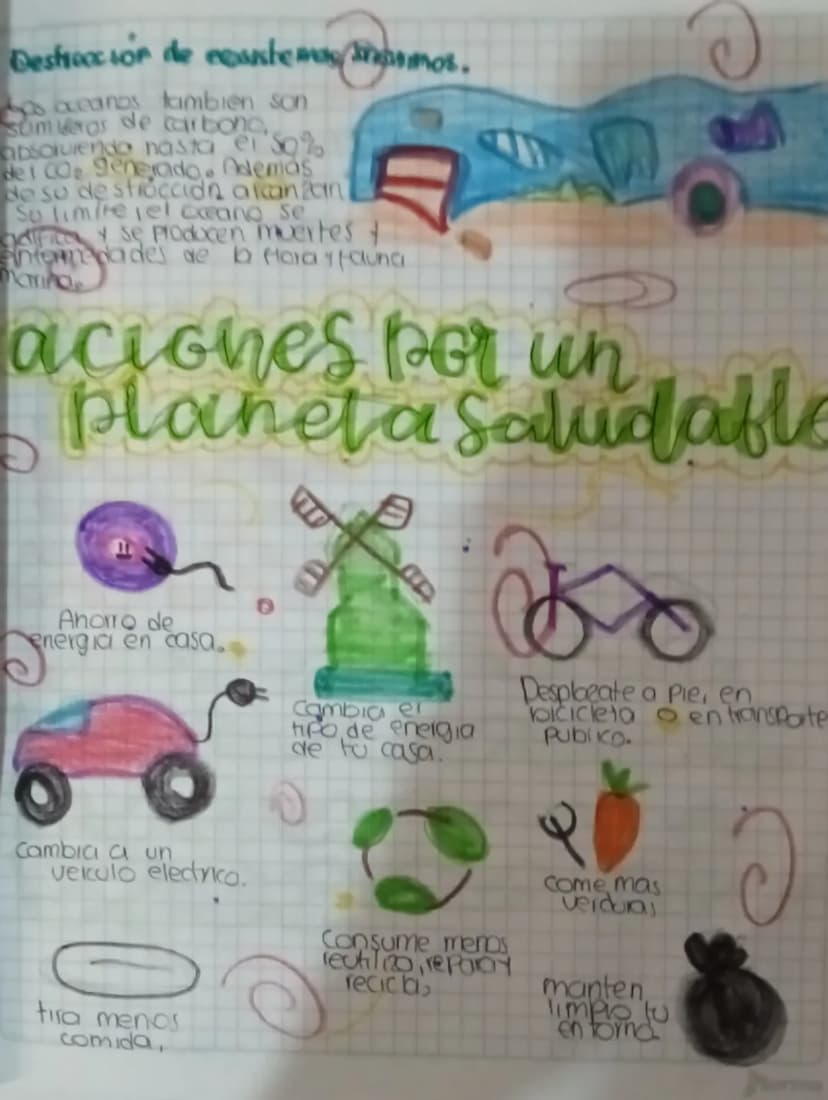 Destrucción de ecosistemas marinos.
Los oceanos tambien son
sumideros de carbono,
absorviendo hasta el 50%
del CO₂ generado. Además
de su destrucción alcanzan
su limite, el oceano se
acidifica y se producen muertes y
enfermedades de la flora y fauna
marina.
aciones por un
planeta saludable
Ahorro de
energia en casa.
Cambia el
tipo de energia
de tu casa.
Desplacate a pie, en
bicicleta o en transporte
publico.
Cambia a un
veiculo electrico.
come mas
verduras
Consume menos
reutiliza, repara y
recicla,
tira menos
comida,
manten
limpio tu
entorno.